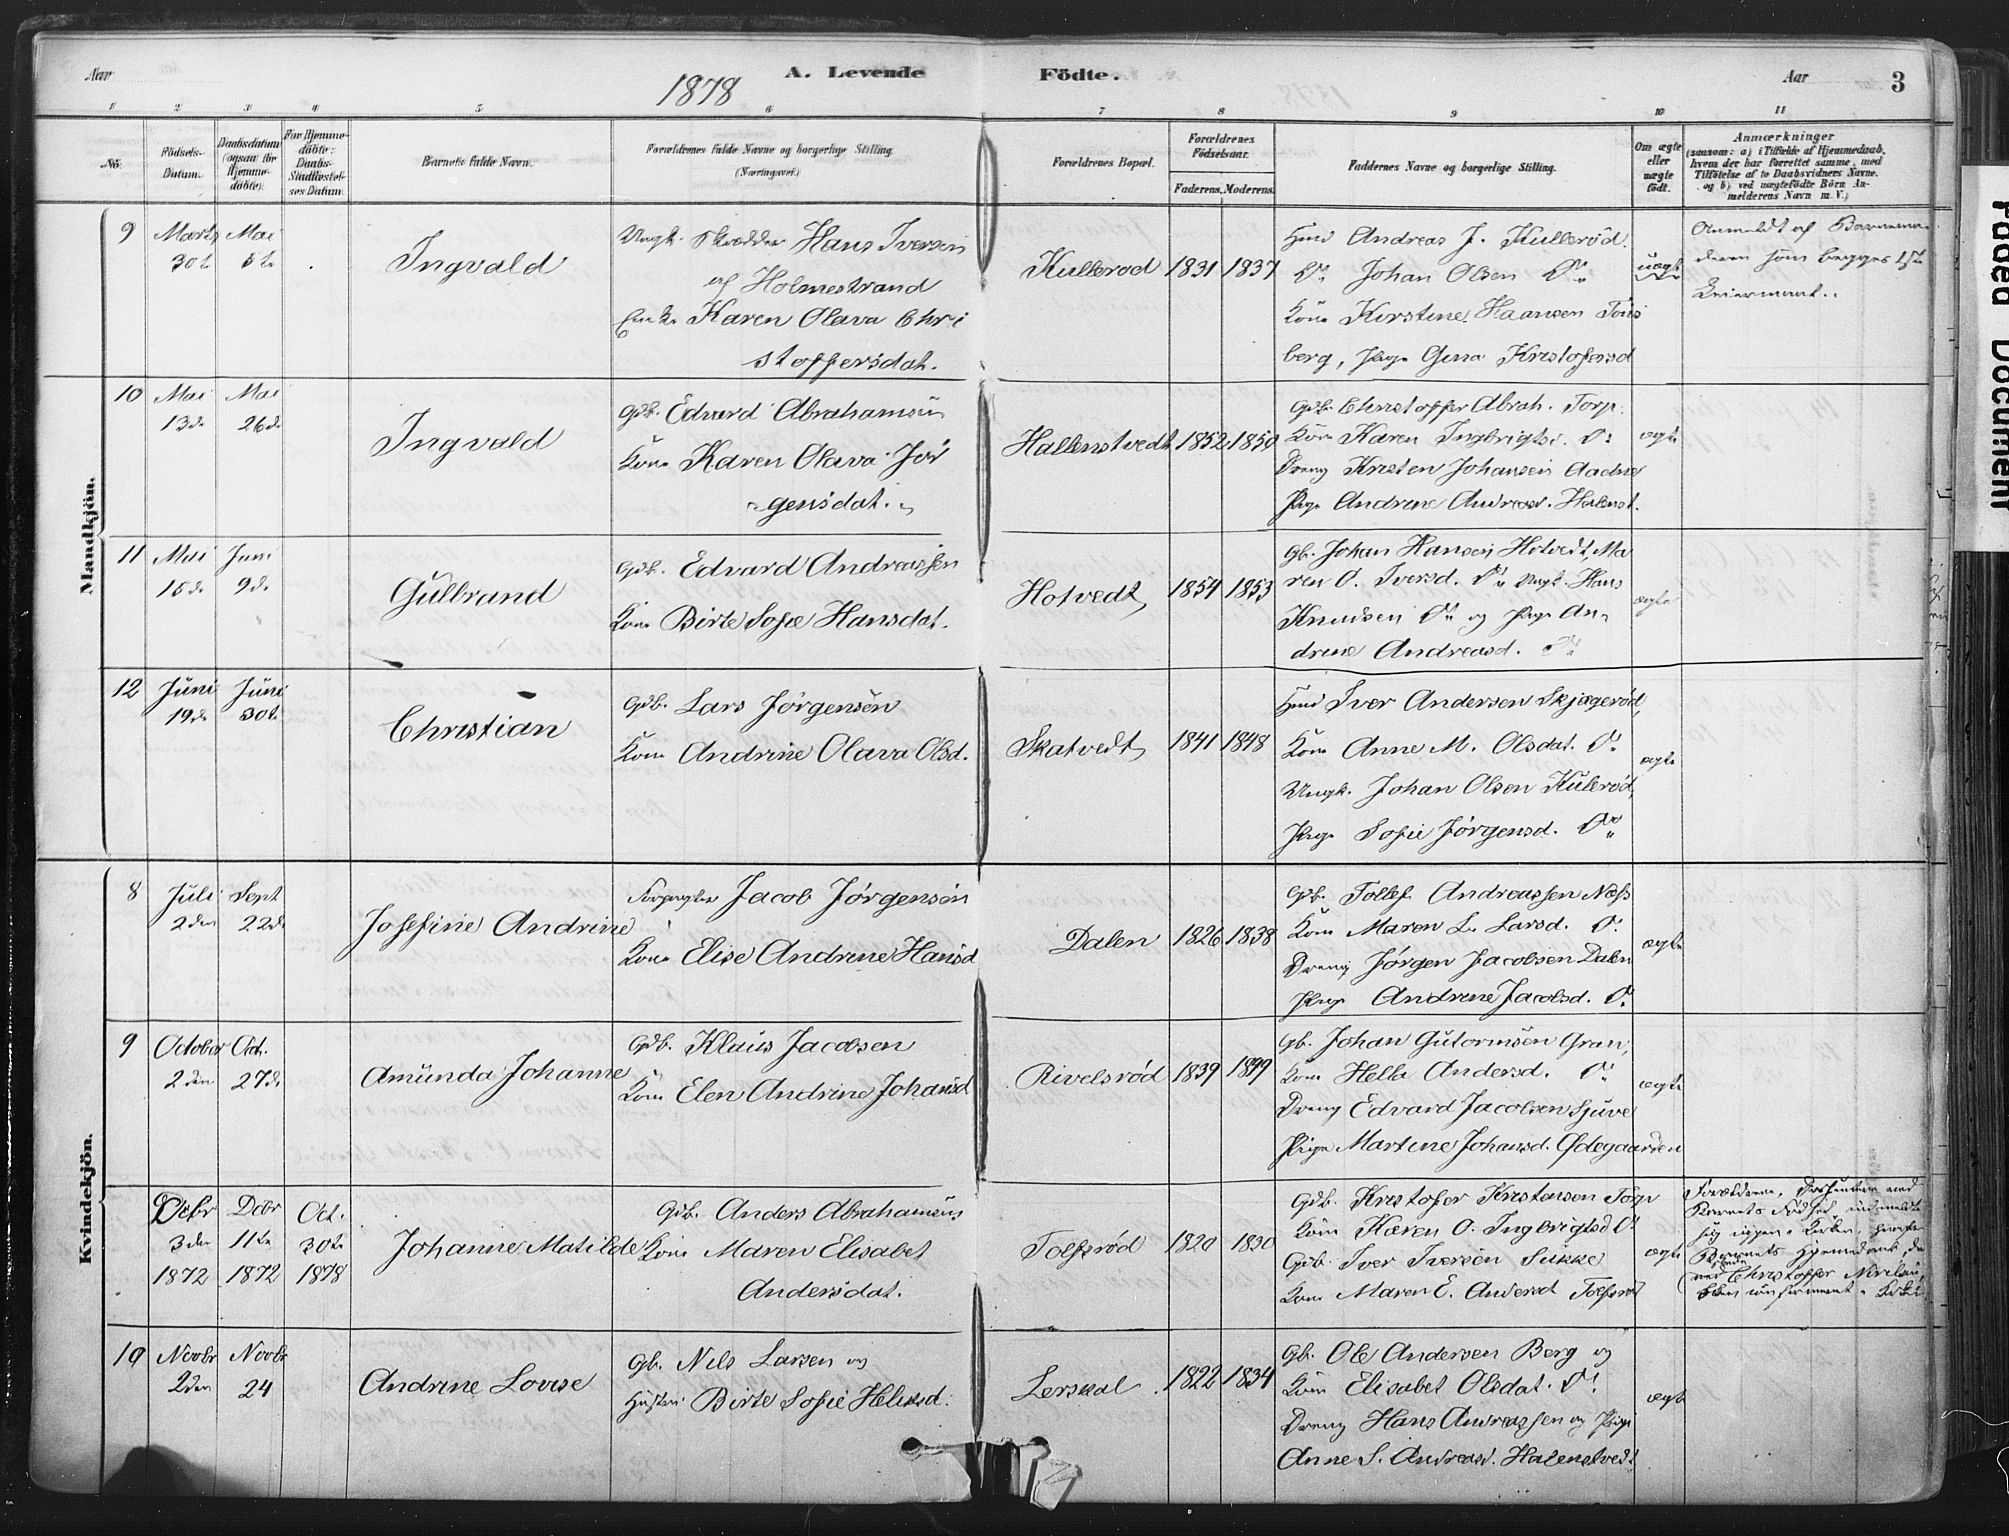 Aar 1878 A. Levende Födte. Aar 3
1 2 3 4 5 6 7 8 9 10 11
No. Födsels-Datum. Daabsdatum (ogsaa för Hjemme-döbte). For Hjemme-döbte: Daabs-Stadfæstel-ses Datum. Barnets fulde Navn. Forældrenes fulde Navne og borgerlige Stilling (Næringsvei.) Forældrenes Bopæl. Forældrenes Födselsaar. Faderens. Moderens. Faddernes Navne og borgerlige Stilling. Om ægte eller uægte födt. Anmærkninger (saasom: a) i Tilfælde af Hjemmedaab, hvem der har forrettet samme, med Tilföielse af to Daabsvidners Navne, og b) ved uægtefödte Börn An-melderens Navn m. V.)
Mandkjön.
9 Marts 30te Mai 5te Ingvald
Ungk. Skrædder Hans Iversen
af Holmestrand
Enke Karen Olava Chri
stoffersdat.
Kullerød 1831 1837
Hmd Andreas J. Kullerød.
Do Johan Olsen Do
Kone Kirstine Haansen Töns
berg, Pige Gina Kristofersd
uægte
Anmeldt af Barnemo
deren som begges 1ste
Leiermaal.
10 Mai 13de Mai 26de Ingvald
Gdb. Edvard Abrahamsen
Kone Karen Olava Jør
gensdat.
Hallenstvedt 1852 1850
Gdb. Christoffer Abrah. Torp.
Kone Karen Ingbrigtsd. Do
Dreng Kristen Johansen Aadne
Pige Andrine Andreasd. Halenst.
ægte
11 Mai 15de Juni 9de Gulbrand
Gdb. Edvard Andreassen
Kone Birte Sofie Hansdat.
Hotvedt 1854 1853
Gb. Johan Hansen Hotvedt, Ma
ren O. Iversd. Do Ungk. Hans
Knudsen Do og Pige An
drine Andreasd. Do
ægte
12 Juni 19de Juni 30te Christian
Gdb. Lars Jørgensen
Kone Andrine Olava Olsd.
Skatvedt 1841 1848
Hmd Iver Andersen Skjægerød,
Kone Anne M. Olsdat. Do
Ungk. Johan Olsen Kulerød,
Pige Sofie Jørgensd. Do
ægte
Kvindekjön.
8 Juli 2den Sept 22de Josefine Andrine
Forpagter Jacob Jørgensen
Kone Elise Andrine Hansd
Dalen 1826 1838
Gdb. Tollef Andreassen Næss
Kone Maren L. Larsd. Do
Dreng Jørgen Jacobsen Dalen
Pige Andrine Jacobsd. Do
ægte
9 October 2den Oct. 27de Amunda Johanne
Gdb. Klaus Jacobsen
Kone Elen Andrine Johansd
Rivelsrød 1839
Gb. Johan Gutormsen Gran,
Kone Hella Andersd. Do
Dreng Edvard Jacobsen Sjuve
Pige Martine Johansd. Ødegaarden
ægte
Debr 3den 1872 Debr 11te 1872 Oct. 30te 1878 Johanne Matilde
Gdb. Anders Abrahamsen
Kone Maren Elisabet
Andersdat.
Tolfsrød 1820 1830
Gdb. Kristofer Kristensen Torp
Kone Karen O. Ingbrigtsd Do
Gdb. Iver Iversen Sukke
Kone Maren E. Andersd Tolfsrød
ægte
Forældrene, Dissentere ved
Barnets Födsel, indmeldte
sig igjen i Kirken,
Barnets Hjemmedaab,
ved Christoffer
confirmeret i Kirken
10 Novbr 2den Novbr 24 Andrine Lovise
Gb. Nils Larsen og
Hustru Birte Sofie Heliksd.
Lerskal 1822 1834
Gb. Ole Andersen Berg og
Kone Elisabet Olsdat. Do
Dreng Hans Andreassen og Pige
Anne S. Andreasd. Halenstvedt
ægte
Faded Document